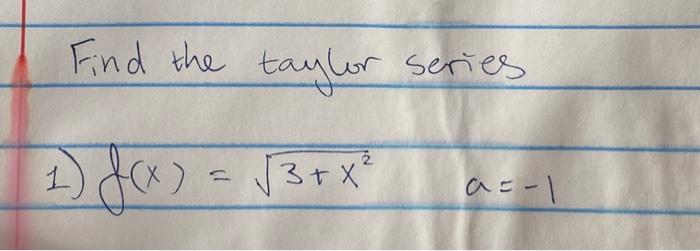 Find the taylor series
1) f(x) = √3+x² a=-1